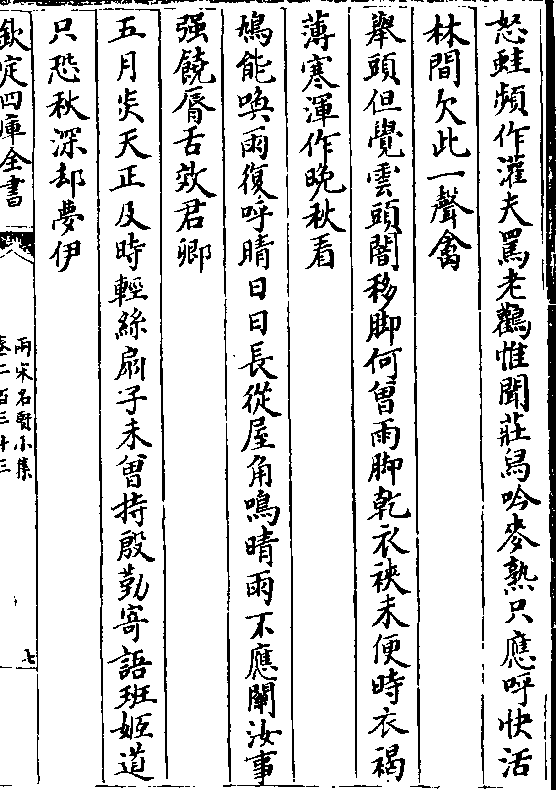 怒蛙頻作灌夫罵老鸛惟聞莊舄吟麥熟只應呼快活
林間欠此一聲禽
舉頭但覺雲頭闇移脚何曾雨脚乾衣裌未便時衣褐
薄寒渾作晚秋看
鳩能喚雨復呼晴日日長從屋角鳴晴雨不應關汝事
强饒脣舌效君卿
五月炎天正及時輕絲扇子未曾持殷勤寄語班姬道
只恐秋深却夢伊
欽定四庫全書
兩宋名賢小集
卷二百三十三
七